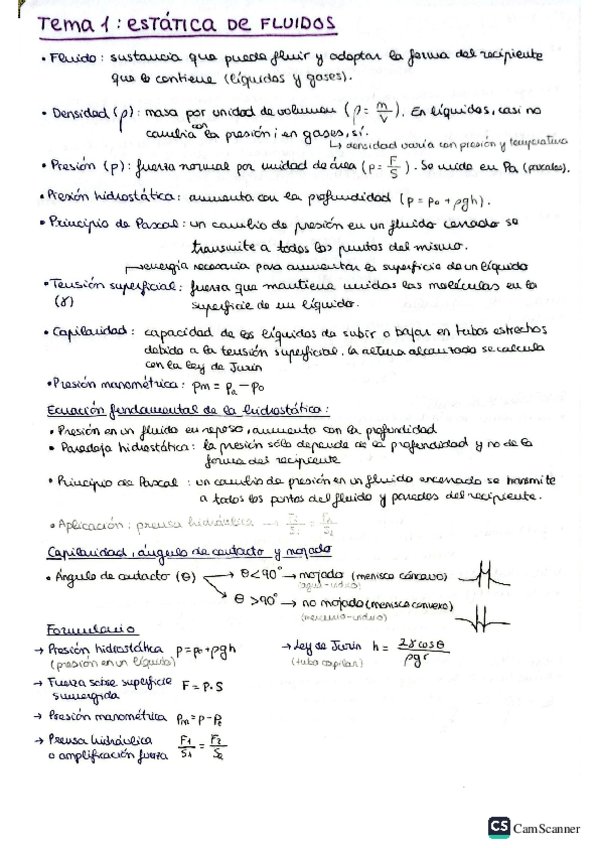 Tema 1: ESTÁTICA DE FLUIDOS
• Fluido: sustancia que puede fluir y adoptar la forma del recipiente
que lo contiene (líquidos y gases).
• Densidad (ρ): masa por unidad de volumen (ρ = m/V). En líquidos, casi no
cambia con la presión; en gases, sí.
↳ densidad varía con presión y temperatura
• Presión (p): fuerza normal por unidad de área (p = F/S). Se mide en Pa (pascales).
• Presión hidrostática: aumenta con la profundidad (p = p₀ + ρgh).
• Principio de Pascal: un cambio de presión en un fluido cerrado se
transmite a todos los puntos del mismo.
energía necesaria para aumentar la superficie de un líquido
• Tensión superficial: fuerza que mantiene unidas las moléculas en la
(γ) superficie de un líquido.
• Capilaridad: capacidad de los líquidos de subir o bajar en tubos estrechos
debido a la tensión superficial. La altura alcanzada se calcula
con la ley de Jurin
• Presión manométrica: pm = pa − p₀
Ecuación fundamental de la hidrostática:
• Presión en un fluido en reposo, aumenta con la profundidad
• Paradoja hidrostática: la presión sólo depende de la profundidad y no de la
forma del recipiente
• Principio de Pascal: un cambio de presión en un fluido encerrado se transmite
a todos los puntos del fluido y paredes del recipiente.
• Aplicación: prensa hidráulica → F₁/S₁ = F₂/S₂
Capilaridad, ángulo de contacto y mojado
• Ángulo de contacto (θ) → θ < 90° → mojado (menisco cóncavo)
(agua-vidrio)
θ > 90° → no mojado (menisco convexo)
(mercurio-vidrio)
Formulario
→ Presión hidrostática p = p₀ + ρgh → Ley de Jurin h = 2γcosθ/ρgr
(presión en un líquido) (tubo capilar)
→ Fuerza sobre superficie F = P·S
sumergida
→ Presión manométrica Pm = P −
→ Prensa hidráulica F₁/S₁ = F₂/S₂
o amplificación fuerza
CS CamScanner